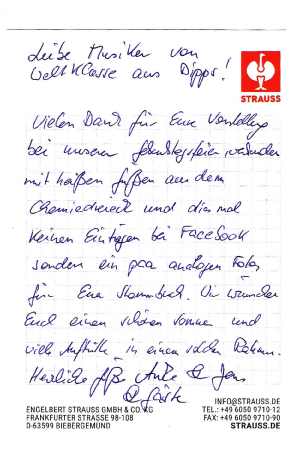 Liebe Musiker von
Weltklasse aus Dipps!
STRAUSS
Vielen Dank für Eure Vorstellung
bei unserer Geburtstagsfeier verbunden
mit heißen Füßen aus dem
Chemiedreieck und diesmal
keinen Einträgen bei Facebook
sondern ein paar analogen Fotos
für Eure Stammbuch. Wir wünschen
Euch einen schönen Sommer und
viele Auftritte in einem solchen Rahmen.
Herzliche Grüße Anke & Jens
& Gäste
ENGELBERT STRAUSS GMBH & CO. KG
FRANKFURTER STRASSE 98-108
D-63599 BIEBERGEMÜND
INFO@STRAUSS.DE
TEL.: +49 6050 9710-12
FAX: +49 6050 9710-90
STRAUSS.DE